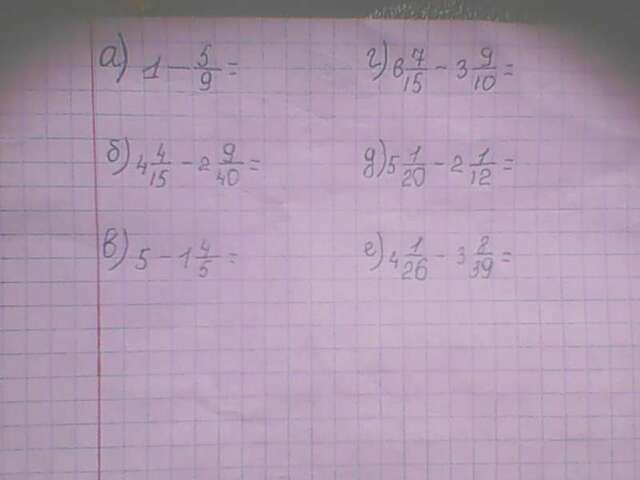 а) 1 - 5/9 =
г) 8 7/15 - 3 9/10 =
б) 4 4/15 - 2 9/40 =
д) 5 1/20 - 2 1/12 =
в) 5 - 1 4/5 =
е) 4 1/26 - 3 2/39 =